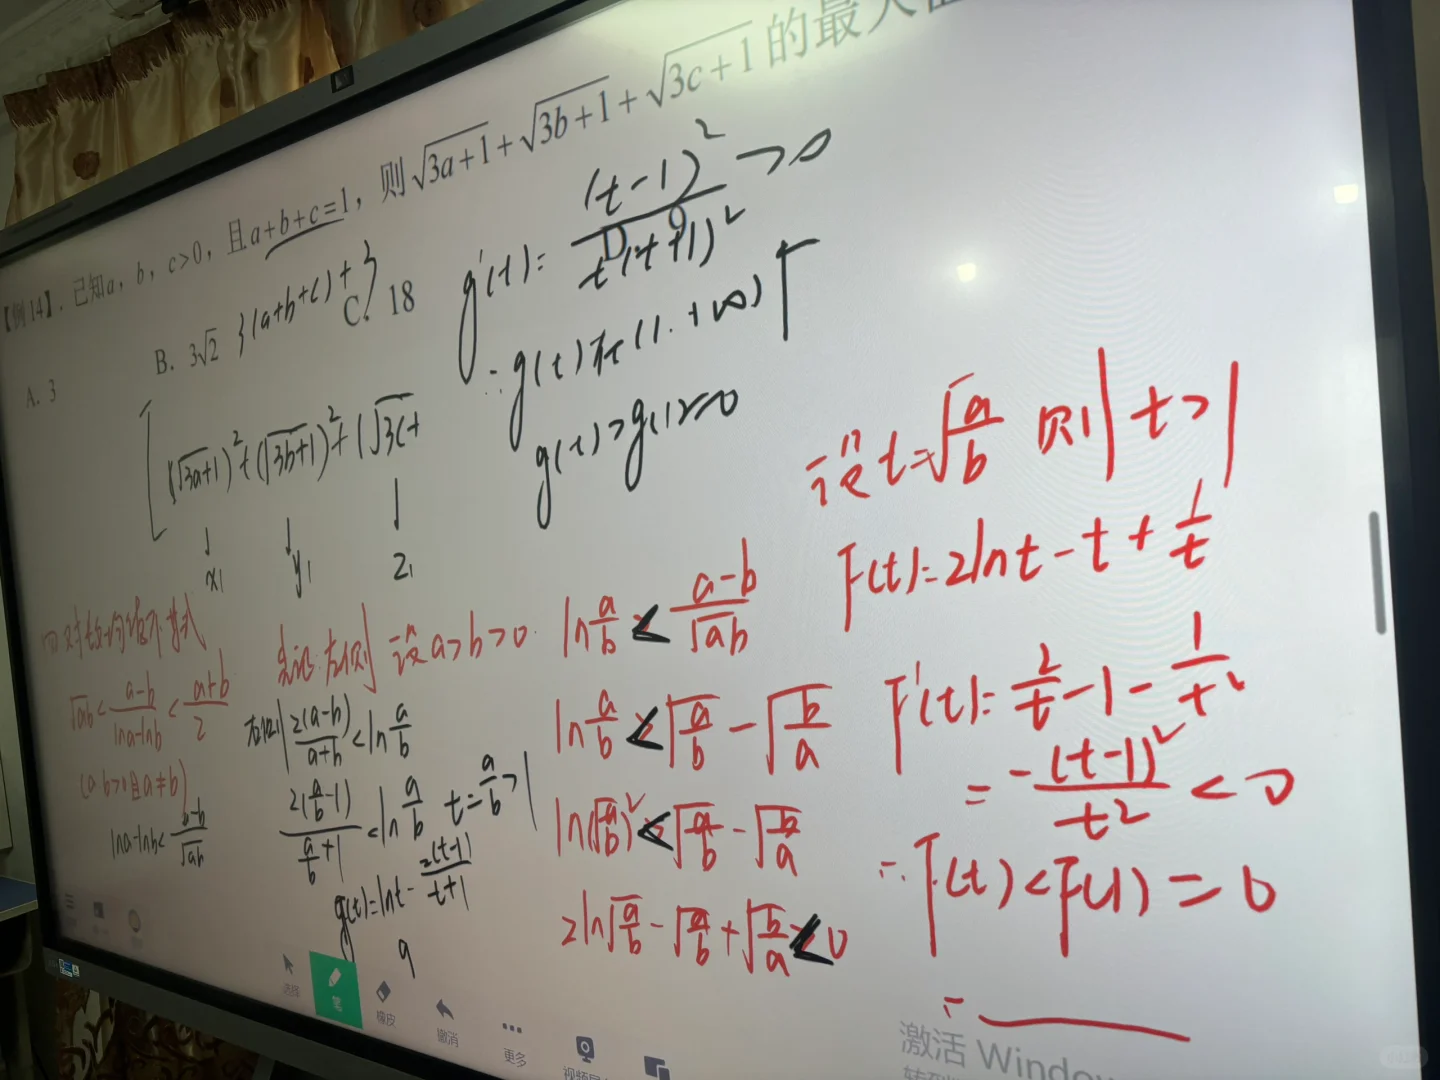 【例14】. 已知a，b，c>0，且a+b+c=1，则√(3a+1)+√(3b+1)+√(3c+1)的最大
A. 3
B. 3√2
C. 18
D. 9
3(a+b+c)+3
[(√(3a+1))²+(√(3b+1))²+(√3c+
↓ ↓ ↓
x₁ y₁ z₁
g'(t)=(t-1)²/t(t+1)²>0
∴g(t)在(1.+∞)↑
g(t)>g(1)=0
对数均值不等式
√ab<(a-b)/(lna-lnb)<(a+b)/2
(a b>0且a≠b)
lna-lnb<(a-b)/√ab
先证:右侧 设a>b>0.
2(a-b)/(a+b)<ln a/b
2(a/b-1)/(a/b+1)<ln a/b t=a/b>1
g(t)=lnt-2(t-1)/(t+1)
9
ln a/b<(a-b)/√ab
ln a/b<√(a/b)-√(b/a)
ln(√(a/b))²<√(a/b)-√(b/a)
2ln√(a/b)-√(a/b)+√(b/a)<0
设t=√(a/b) 则|t>1
F(t)=2lnt-t+1/t
F'(t)=2/t-1-1/t²
=-(t-1)²/t²<0
∴F(t)<F(1)=0
选择
笔
橡皮
撤消
更多
激活 Window